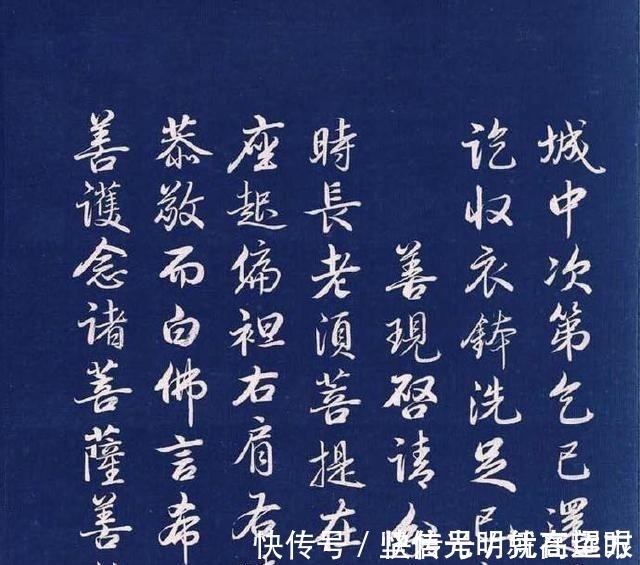 城中次第乞已還
訖收衣鉢洗足已
善現啓請分
時長老須菩提在
座起偏袒右肩右
恭敬而白佛言希
善護念諸菩薩善
快传号／